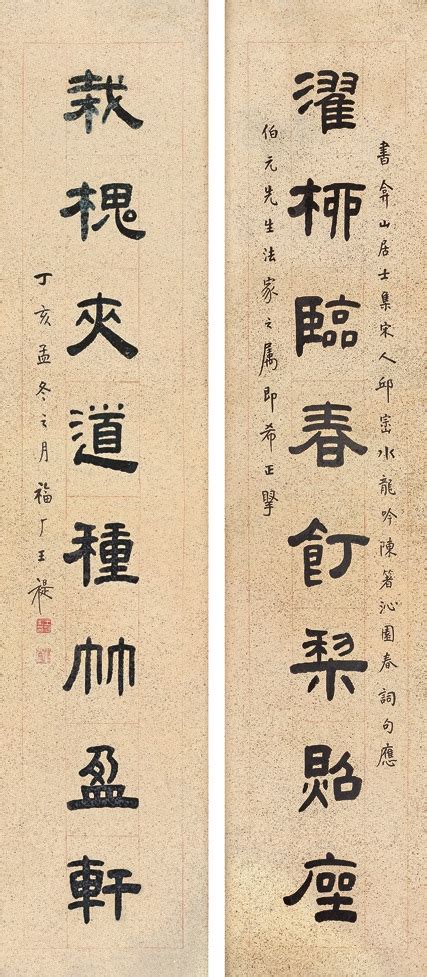 書弇山居士集宋人邱崈水龍吟陳箸沁園春詞句應
濯柳臨春飣棃照座
伯元先生法家之属即希正
栽槐夾道種竹盈軒
丁亥孟冬之月福厂王禔